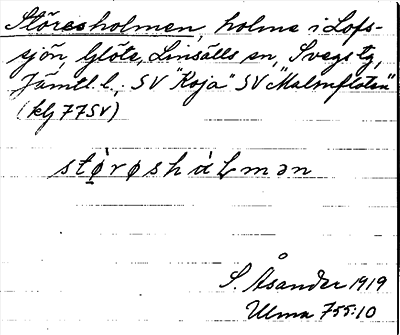 Störesholmen, holme i Lofs-
sjön, Glöte, Linsälls sn, Svegs tg,
Jämtl. l.; SV "Koja" SV "Malmfloten"
(klj 77SV)
stø̀røshàɫmən
S. Åsander 1919
Ulma 755:10